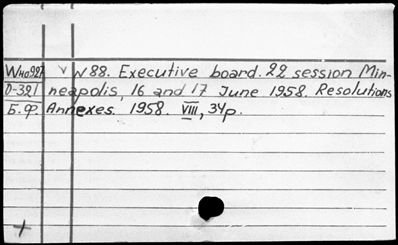 Wно927 V N 88. Executive board. 22 session Min-
D-321 neapolis, 16 and 17 June 1958. Resolutions
Б.Ф. Annexes. 1958. VIII, 34p.
+